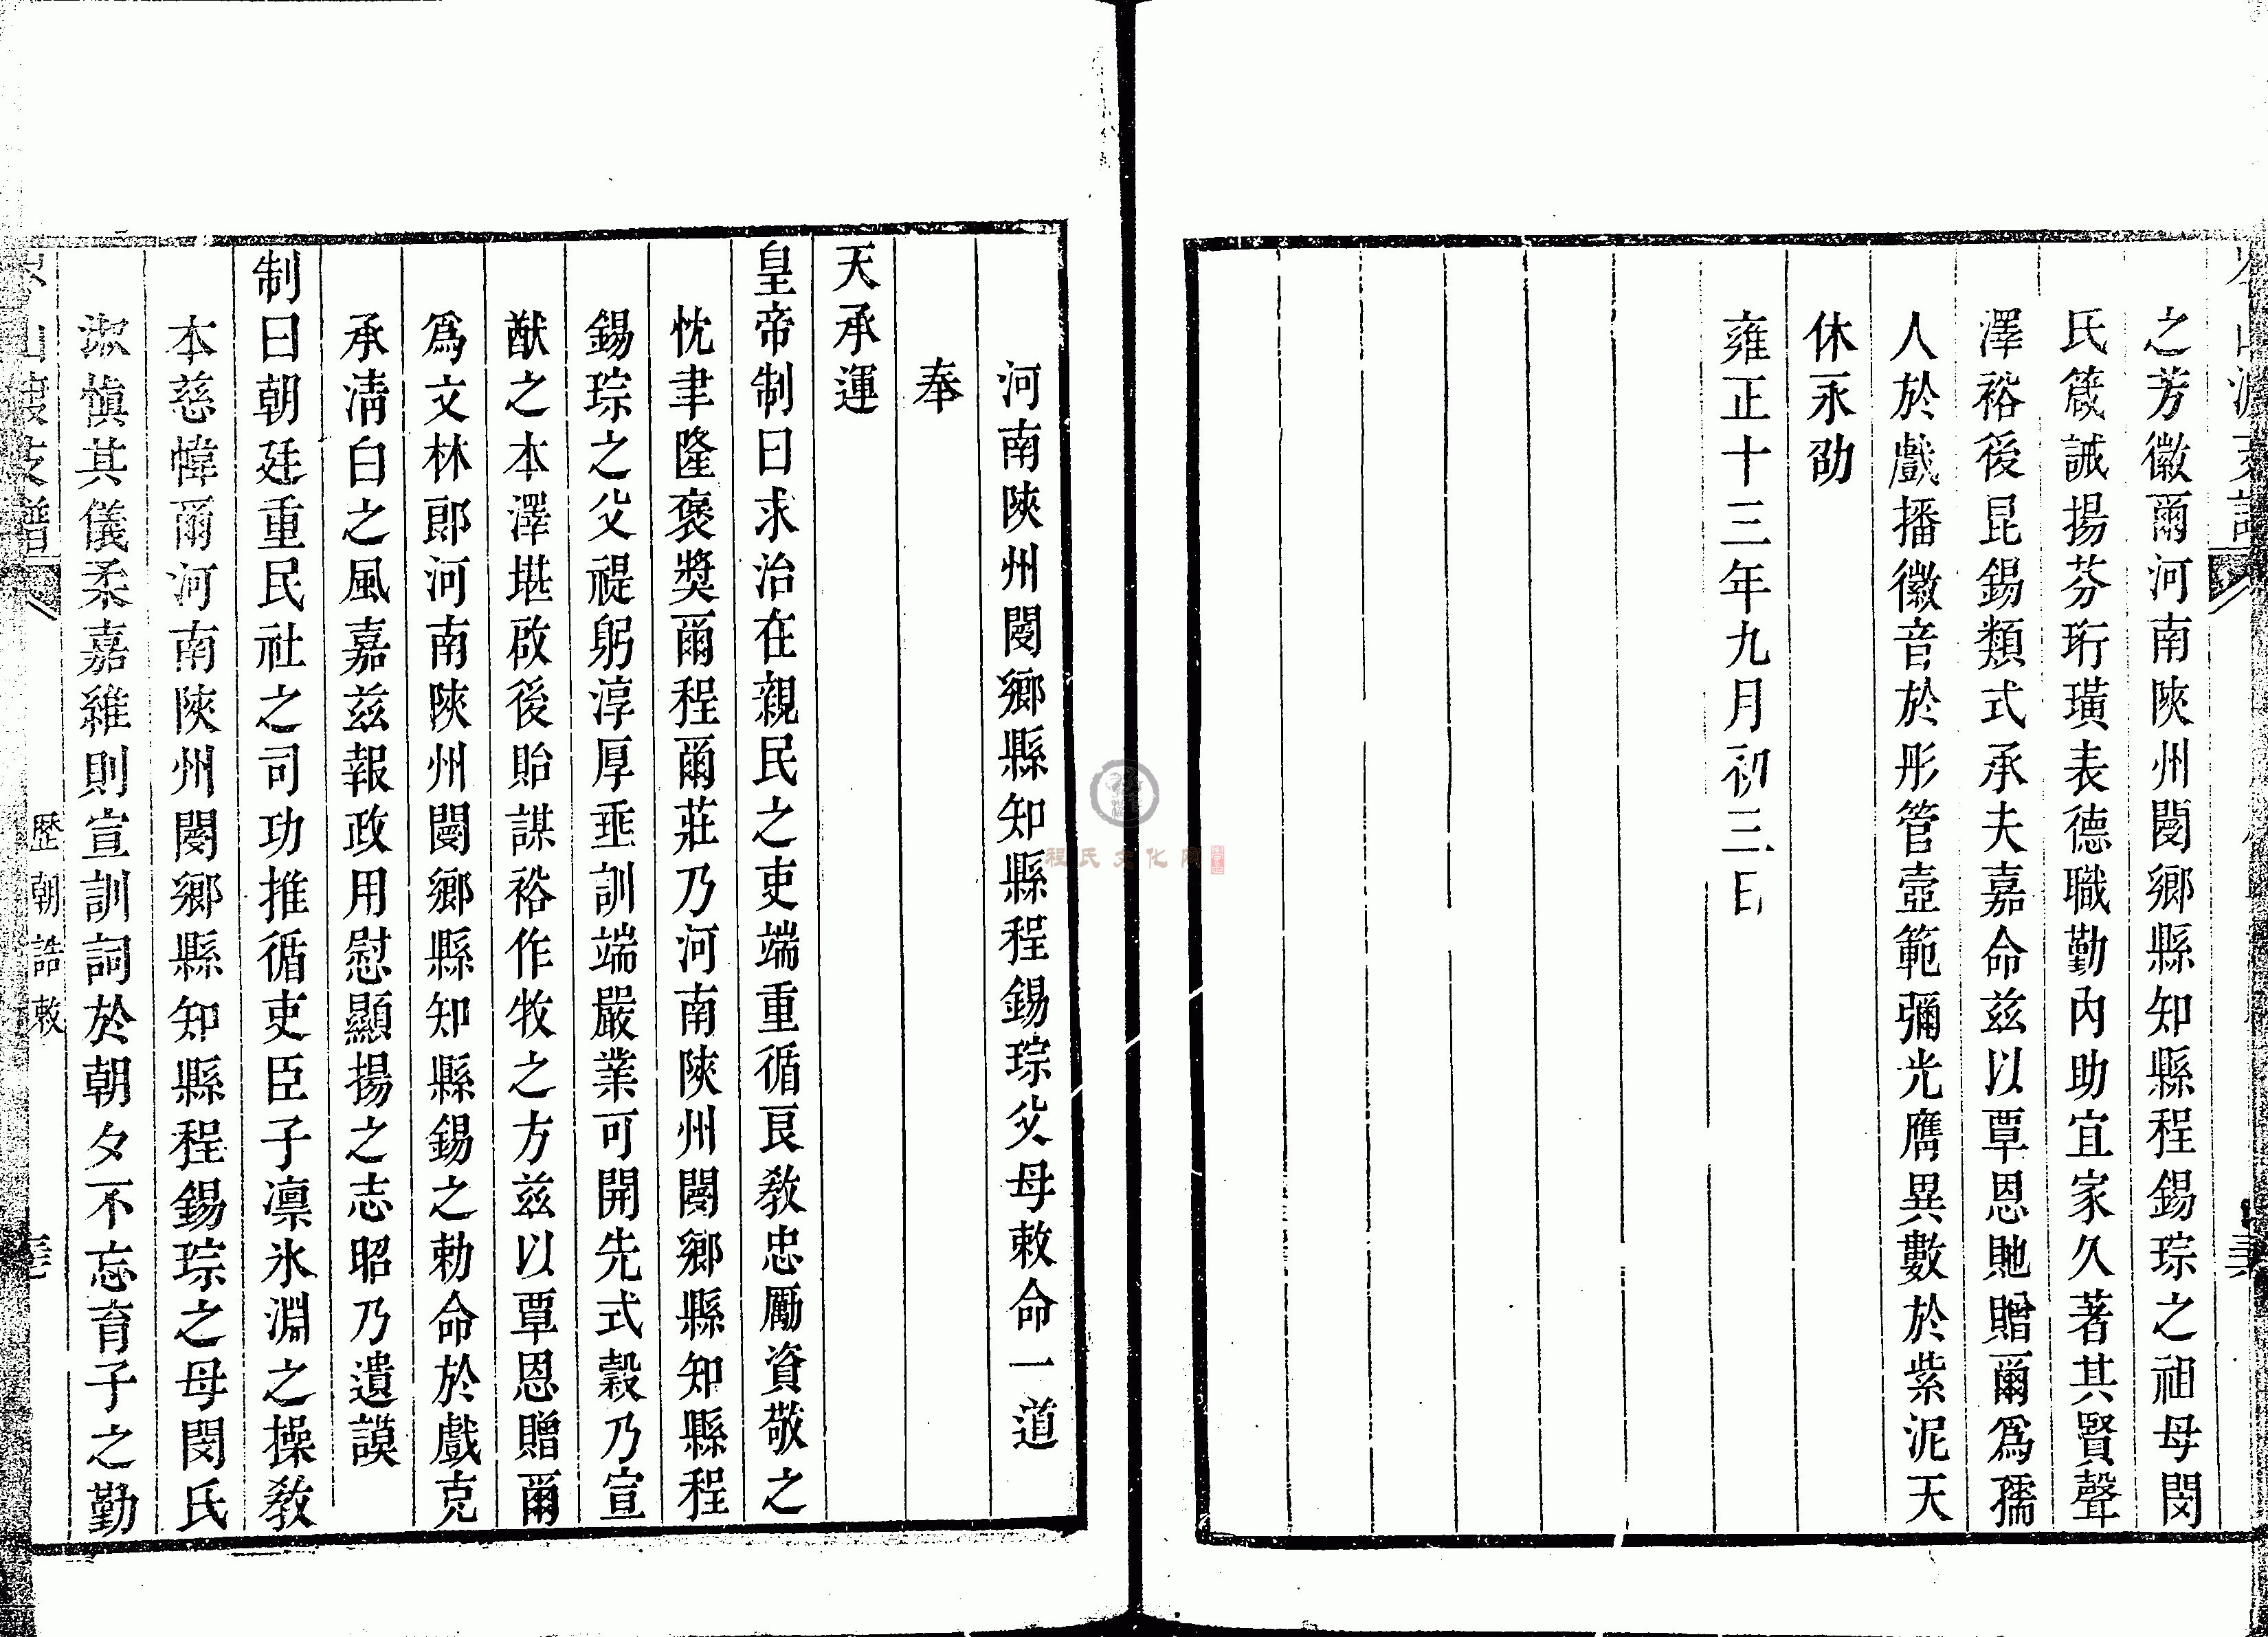 之芳徽爾河南陝州閿鄉縣知縣程錫琮之祖母閔
氏箴誡揚芬珩璜表德職勤內助宜家久著其賢聲
澤裕後昆錫類式承夫嘉命兹以覃恩貤贈爾爲孺
人於戲播徽音於彤管壼範彌光膺異數於紫泥天
休永劭
雍正十三年九月初三日
河南陝州閿鄉縣知縣程錫琮父母敕命一道
奉
天承運
皇帝制曰求治在親民之吏端重循良教忠勵資敬之
忱聿隆褒獎爾程爾莊乃河南陝州閿鄉縣知縣程
錫琮之父禔躬淳厚垂訓端嚴業可開先式穀乃宣
猷之本澤堪啟後貽謀裕作牧之方兹以覃恩贈爾
爲文林郎河南陝州閿鄉縣知縣錫之勅命於戲克
承清白之風嘉兹報政用慰顯揚之志昭乃遺謨
制曰朝廷重民社之司功推循吏臣子凛氷淵之操教
本慈幃爾河南陝州閿鄉縣知縣程錫琮之母閔氏
淑慎其儀柔嘉維則宣訓詞於朝夕不忘育子之勤
歷朝誥敕
程氏文化网